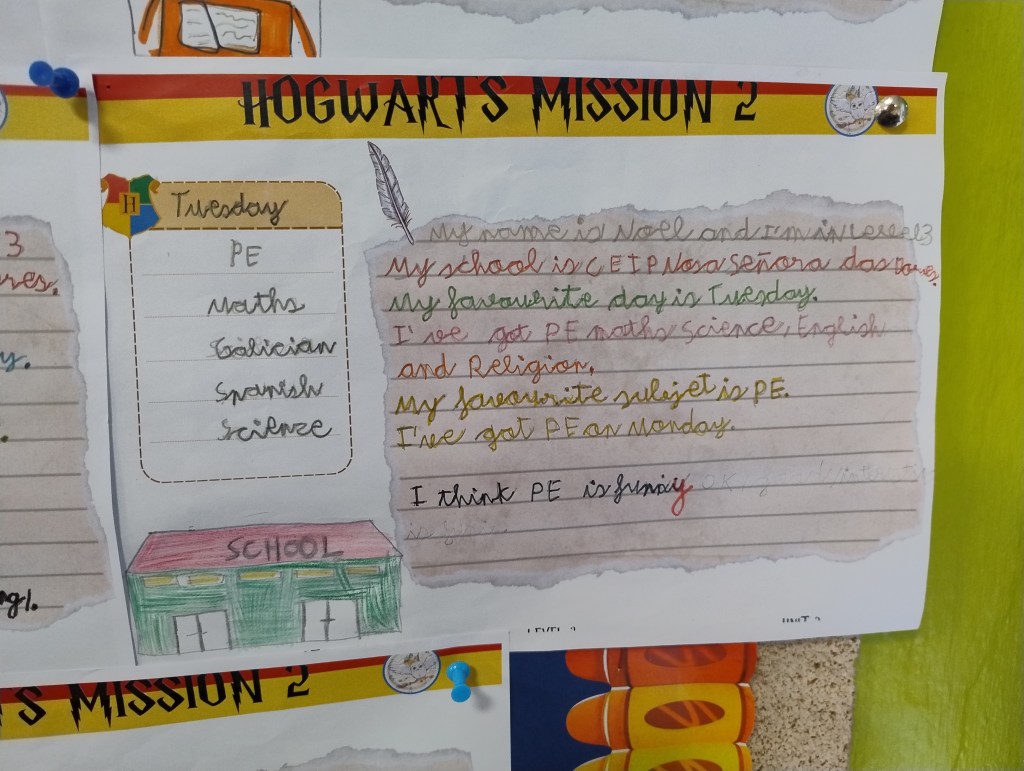 HOGWARTS MISSION 2
H
Tuesday
PE
Maths
Galician
Spanish
Science
My name is Noel and I'm in Level 3
My school is CEIP Nosa Señora das Dores.
My favourite day is Tuesday.
I've got PE maths science, English
and Religion.
My favourite subjet is PE.
I've got PE on Monday.
I think PE is funny
SCHOOL
3
res.
y.
ng!.
LEVEL 3
UNIT 2
S MISSION 2